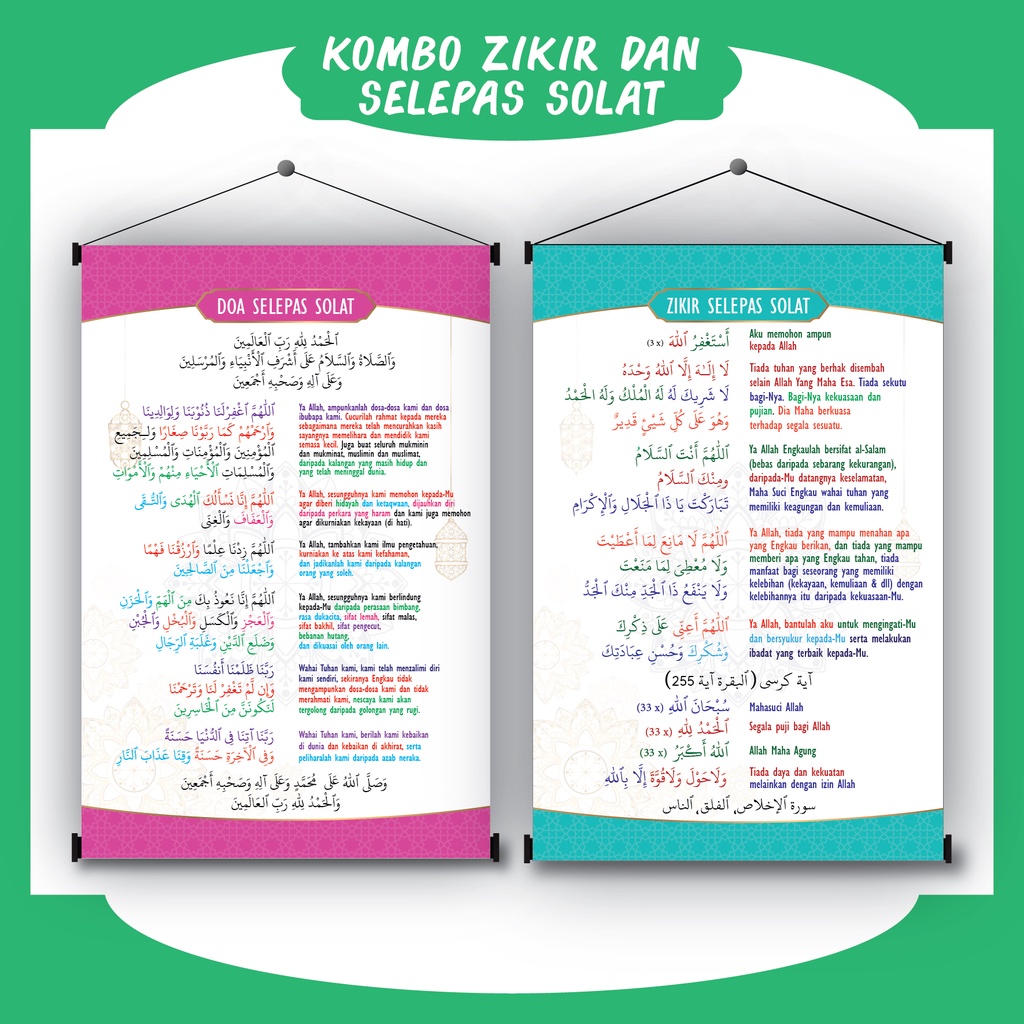 KOMBO ZIKIR DAN
SELEPAS SOLAT
DOA SELEPAS SOLAT
ٱلْحَمْدُ لِلَّهِ رَبِّ ٱلْعَالَمِينَ
وَٱلصَّلَاةُ وَٱلسَّلَامُ عَلَى أَشْرَفِ ٱلْأَنْبِيَاءِ وَٱلْمُرْسَلِينَ
وَعَلَى آلِهِ وَصَحْبِهِ أَجْمَعِينَ
ٱللَّهُمَّ ٱغْفِرْلَنَا ذُنُوْبَنَا وَلِوَالِدِينَا
وَٱرْحَمْهُمْ كَمَا رَبَّوْنَا صِغَارًا وَلِـجَمِيعِ
ٱلْمُؤْمِنِينَ وَٱلْمُؤْمِنَاتِ وَٱلْمُسْلِمِينَ
وَٱلْمُسْلِمَاتِ ٱلْأَحْيَاءِ مِنْهُمْ وَٱلْأَمْوَاتِ
Ya Allah, ampunkanlah dosa-dosa kami dan dosa
ibubapa kami. Cucurilah rahmat kepada mereka
sebagaimana mereka telah mencurahkan kasih
sayangnya memelihara dan mendidik kami
semasa kecil. Juga buat seluruh mukminin
dan mukminat, muslimin dan muslimat,
daripada kalangan yang masih hidup dan
yang telah meninggal dunia.
ٱللَّهُمَّ إِنَّا نَسْأَلُكَ ٱلْهُدَى وَٱلتُّـقَى
وَٱلْعَفَافَ وَٱلْغِنَى
Ya Allah, sesungguhnya kami memohon kepada-Mu
agar diberi hidayah dan ketaqwaan, dijauhkan diri
daripada perkara yang haram dan kami juga memohon
agar dikurniakan kekayaan (di hati).
ٱللَّهُمَّ زِدْنَا عِلْمًا وَٱرْزُقْنَا فَهْمًا
وَٱجْعَلْنَا مِنَ ٱلصَّالِحِينَ
Ya Allah, tambahkanlah kami ilmu pengetahuan,
kurniakan ke atas kami kefahaman,
dan jadikanlah kami daripada kalangan
orang yang soleh.
ٱللَّهُمَّ إِنَّا نَعُوذُ بِكَ مِنَ ٱلْهَمِّ وَٱلْحَزَنِ
وَٱلْعَجْزِ وَٱلْكَسَلِ وَٱلْبُخْلِ وَٱلْجُبْنِ
وَضَلَعِ ٱلدَّيْنِ وَغَلَبَةِ ٱلرِّجَالِ
Ya Allah, sesungguhnya kami berlindung
kepada-Mu daripada perasaan bimbang,
rasa dukacita, sifat lemah, sifat malas,
sifat bakhil, sifat pengecut,
bebanan hutang,
dan dikuasai oleh orang lain.
رَبَّنَا ظَلَمْنَا أَنفُسَنَا
وَإِن لَّمْ تَغْفِرْ لَنَا وَتَرْحَمْنَا
لَنَكُونَنَّ مِنَ ٱلْخَاسِرِينَ
Wahai Tuhan kami, kami telah menzalimi diri
kami sendiri, sekiranya Engkau tidak
mengampunkan dosa-dosa kami dan tidak
merahmati kami, nescaya kami akan
tergolong daripada golongan yang rugi.
رَبَّنَا آتِنَا فِي ٱلدُّنْيَا حَسَنَةً
وَفِي ٱلْآخِرَةِ حَسَنَةً وَقِنَا عَذَابَ ٱلنَّارِ
Wahai Tuhan kami, berilah kami kebaikan
di dunia dan kebaikan di akhirat, serta
peliharalah kami daripada azab neraka.
وَصَلَّى ٱللَّهُ عَلَى مُحَمَّدٍ وَعَلَى آلِهِ وَصَحْبِهِ أَجْمَعِينَ
وَٱلْحَمْدُ لِلَّهِ رَبِّ ٱلعَالَمِينَ
ZIKIR SELEPAS SOLAT
أَسْتَغْفِرُ ٱللَّهَ (3 x)
Aku memohon ampun
kepada Allah
لَا إِلَـٰهَ إِلَّا ٱللَّهُ وَحْدَهُ
لَا شَرِيكَ لَهُ لَهُ ٱلْمُلْكُ وَلَهُ ٱلْحَمْدُ
وَهُوَ عَلَى كُلِّ شَيْئٍ قَدِيرٌ
Tiada tuhan yang berhak disembah
selain Allah Yang Maha Esa. Tiada sekutu
bagi-Nya. Bagi-Nya kekuasaan dan
pujian. Dia Maha berkuasa
terhadap segala sesuatu.
ٱللَّهُمَّ أَنْتَ ٱلسَّلَامُ
وَمِنْكَ ٱلسَّلَامُ
تَبَارَكْتَ يَا ذَا ٱلْجَلَالِ وَٱلْإِكْرَامِ
Ya Allah Engkaulah bersifat al-Salam
(bebas daripada sebarang kekurangan),
daripada-Mu datangnya keselamatan,
Maha Suci Engkau wahai tuhan yang
memiliki keagungan dan kemuliaan.
ٱللَّهُمَّ لَا مَانِعَ لِمَا أَعْطَيْتَ
وَلَا مُعْطِيَ لِمَا مَنَعْتَ
وَلَا يَنْفَعُ ذَا ٱلْجَدِّ مِنْكَ ٱلْجَدُّ
Ya Allah, tiada yang mampu menahan apa
yang Engkau berikan, dan tiada yang mampu
memberi apa yang Engkau tahan, tiada
manfaat bagi seseorang yang memiliki
kelebihan (kekayaan, kemuliaan & dll) dengan
kelebihannya itu daripada kekuasaan-Mu.
ٱللَّهُمَّ أَعِنِّي عَلَى ذِكْرِكَ
وَشُكْرِكَ وَحُسْنِ عِبَادَتِكَ
Ya Allah, bantulah aku untuk mengingati-Mu
dan bersyukur kepada-Mu serta melakukan
ibadat yang terbaik kepada-Mu.
آية كرسى (ٱلبقرة آية 255)
سُبْحَانَ ٱللَّهِ (33 x)
Mahasuci Allah
ٱلْحَمْدُ لِلَّهِ (33 x)
Segala puji bagi Allah
ٱللَّهُ أَكْبَرُ (33 x)
Allah Maha Agung
وَلَاحَوْلَ وَلَاقُوَّةَ إِلَّا بِٱللَّهِ
Tiada daya dan kekuatan
melainkan dengan izin Allah
سورة ٱلإخلاص, ٱلفلق, ٱلناس